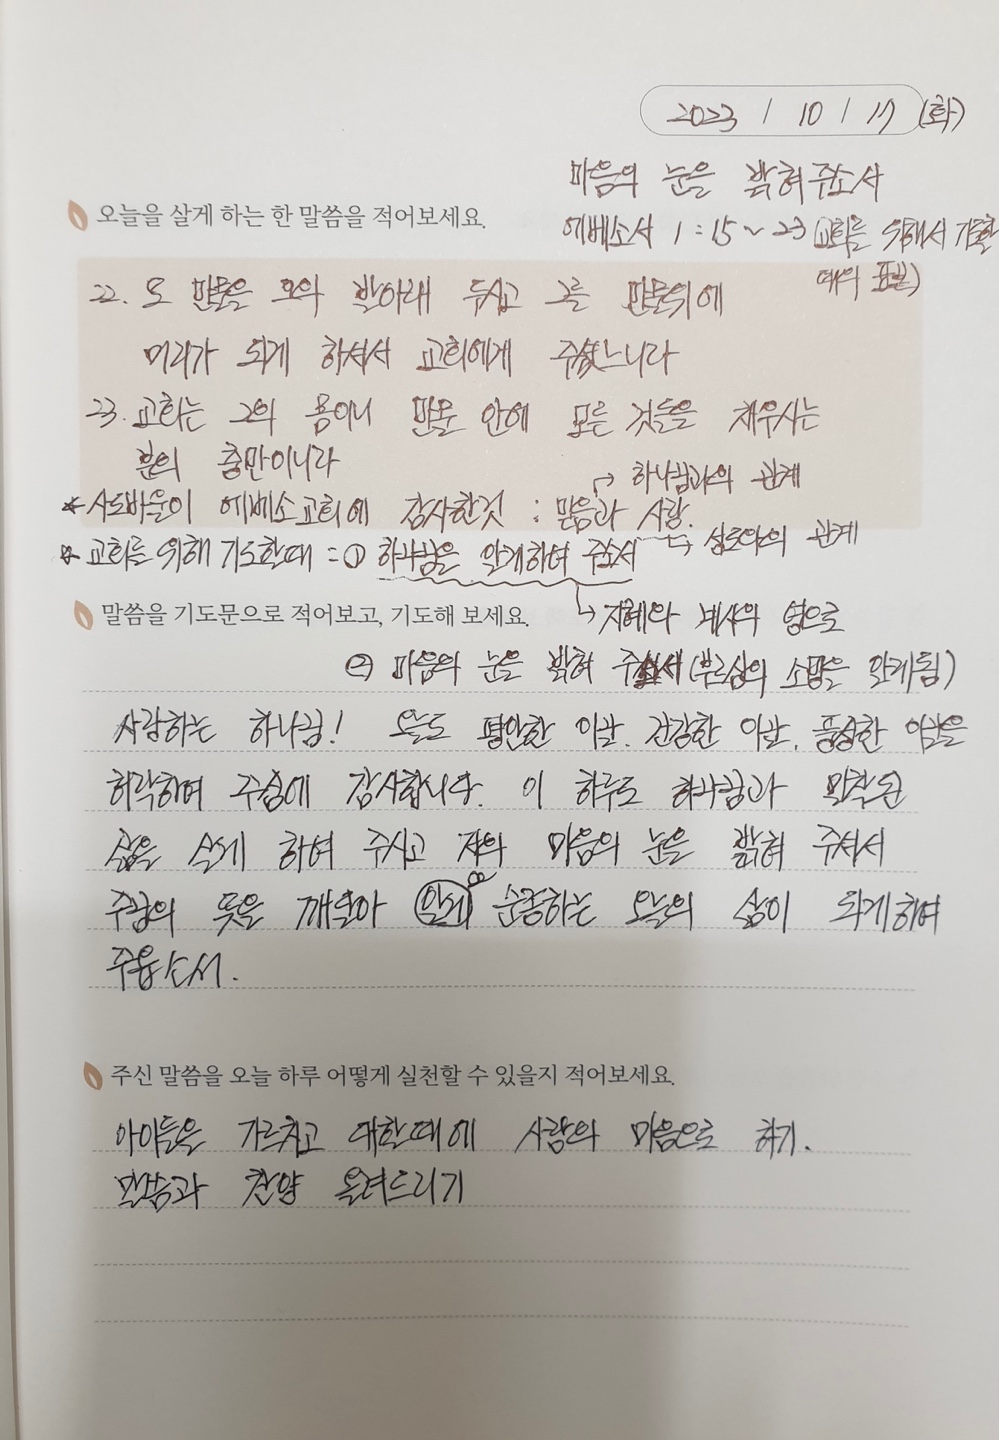 2023 / 10 / 17 (화)
마음의 눈을 밝혀주소서
오늘을 살게 하는 한 말씀을 적어보세요.
에베소서 1:15~23 (교회를 위해서 기도할
때의 표본)
22. 또 만물을 그의 발아래 두시고 그를 만물위에
머리가 되게 하셔서 교회에게 주셨느니라
23. 교회는 그의 몸이니 만물 안에 모든 것들을 채우시는
분의 충만이니라
→ 하나님과의 관계
* 사도바울이 에베소교회에 감사한것 : 믿음과 사랑.
→ 성도와의 관계
* 교회를 위해 기도할때 = ① 하나님을 알게하여 주소서
→ 지혜와 계시의 영으로
말씀을 기도문으로 적어보고, 기도해 보세요.
② 마음의 눈을 밝혀 주소서 (부르심의 소망을 알게됨)
사랑하는 하나님! 오늘도 평안한 이날, 건강한 이날, 풍성한 이날을
허락하여 주심에 감사합니다. 이 하루도 하나님과 밀착된
삶을 살게 하여 주시고 저의 마음의 눈을 밝혀 주셔서
주님의 뜻을 깨달아 알게 순종하는 오늘의 삶이 되게하여
주옵소서.
주신 말씀을 오늘 하루 어떻게 실천할 수 있을지 적어보세요.
아이들을 가르치고 대할때에 사랑의 마음으로 하기.
말씀과 찬양 올려드리기